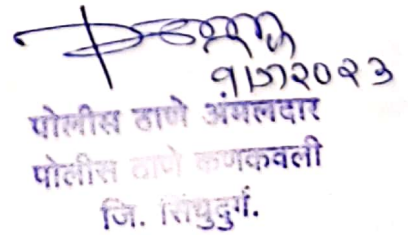 १/७/२०२३
पोलीस ठाणे अंमलदार
पोलीस ठाणे कणकवली
जि. सिंधुदुर्ग.